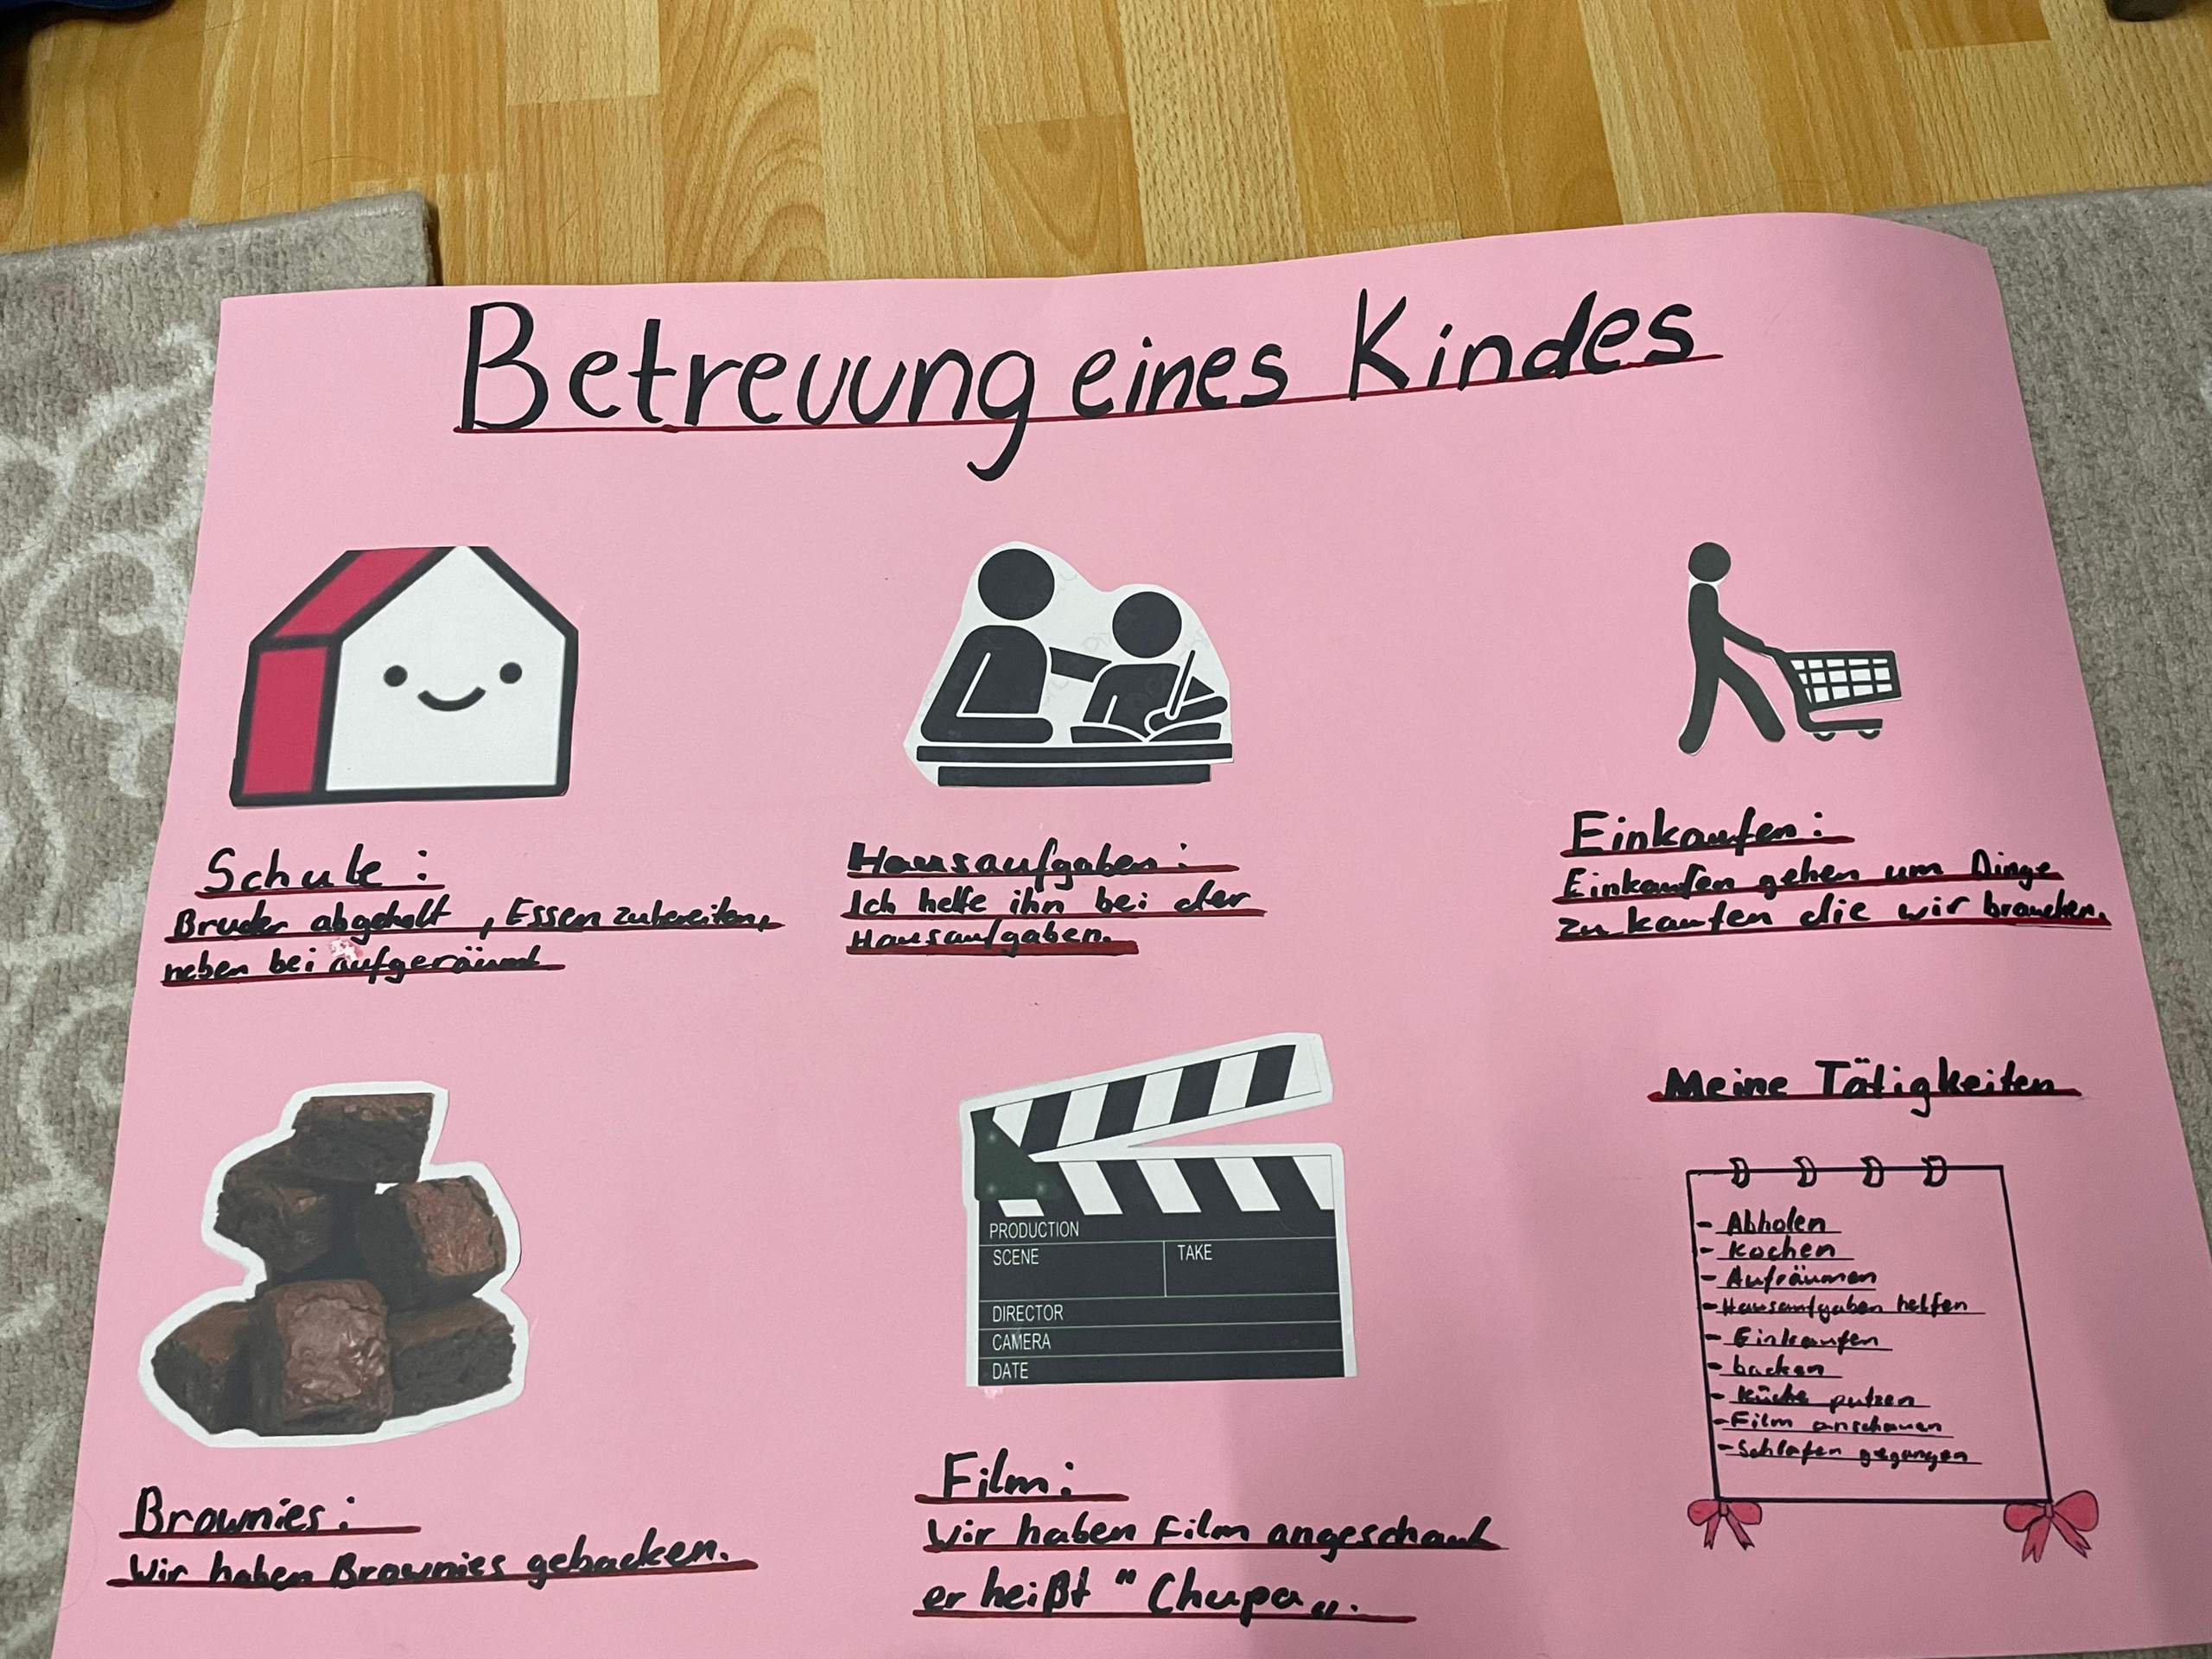 Betreuung eines Kindes
Schule:
Bruder abgeholt, Essen zubereiten,
neben bei aufgeräumt
Hausaufgaben:
Ich helfe ihn bei der
Hausaufgaben.
Einkaufen:
Einkaufen gehen um Dinge
zu kaufen die wir brauchen.
Brownies:
Wir haben Brownies gebacken.
PRODUCTION
SCENE TAKE
DIRECTOR
CAMERA
DATE
Film:
Wir haben Film angeschaut
er heißt "Chupa„.
Meine Tätigkeiten
- Abholen
- Kochen
- Aufräumen
- Hausaufgaben helfen
- Einkaufen
- backen
- Küche putzen
- Film anschauen
- Schlafen gegangen